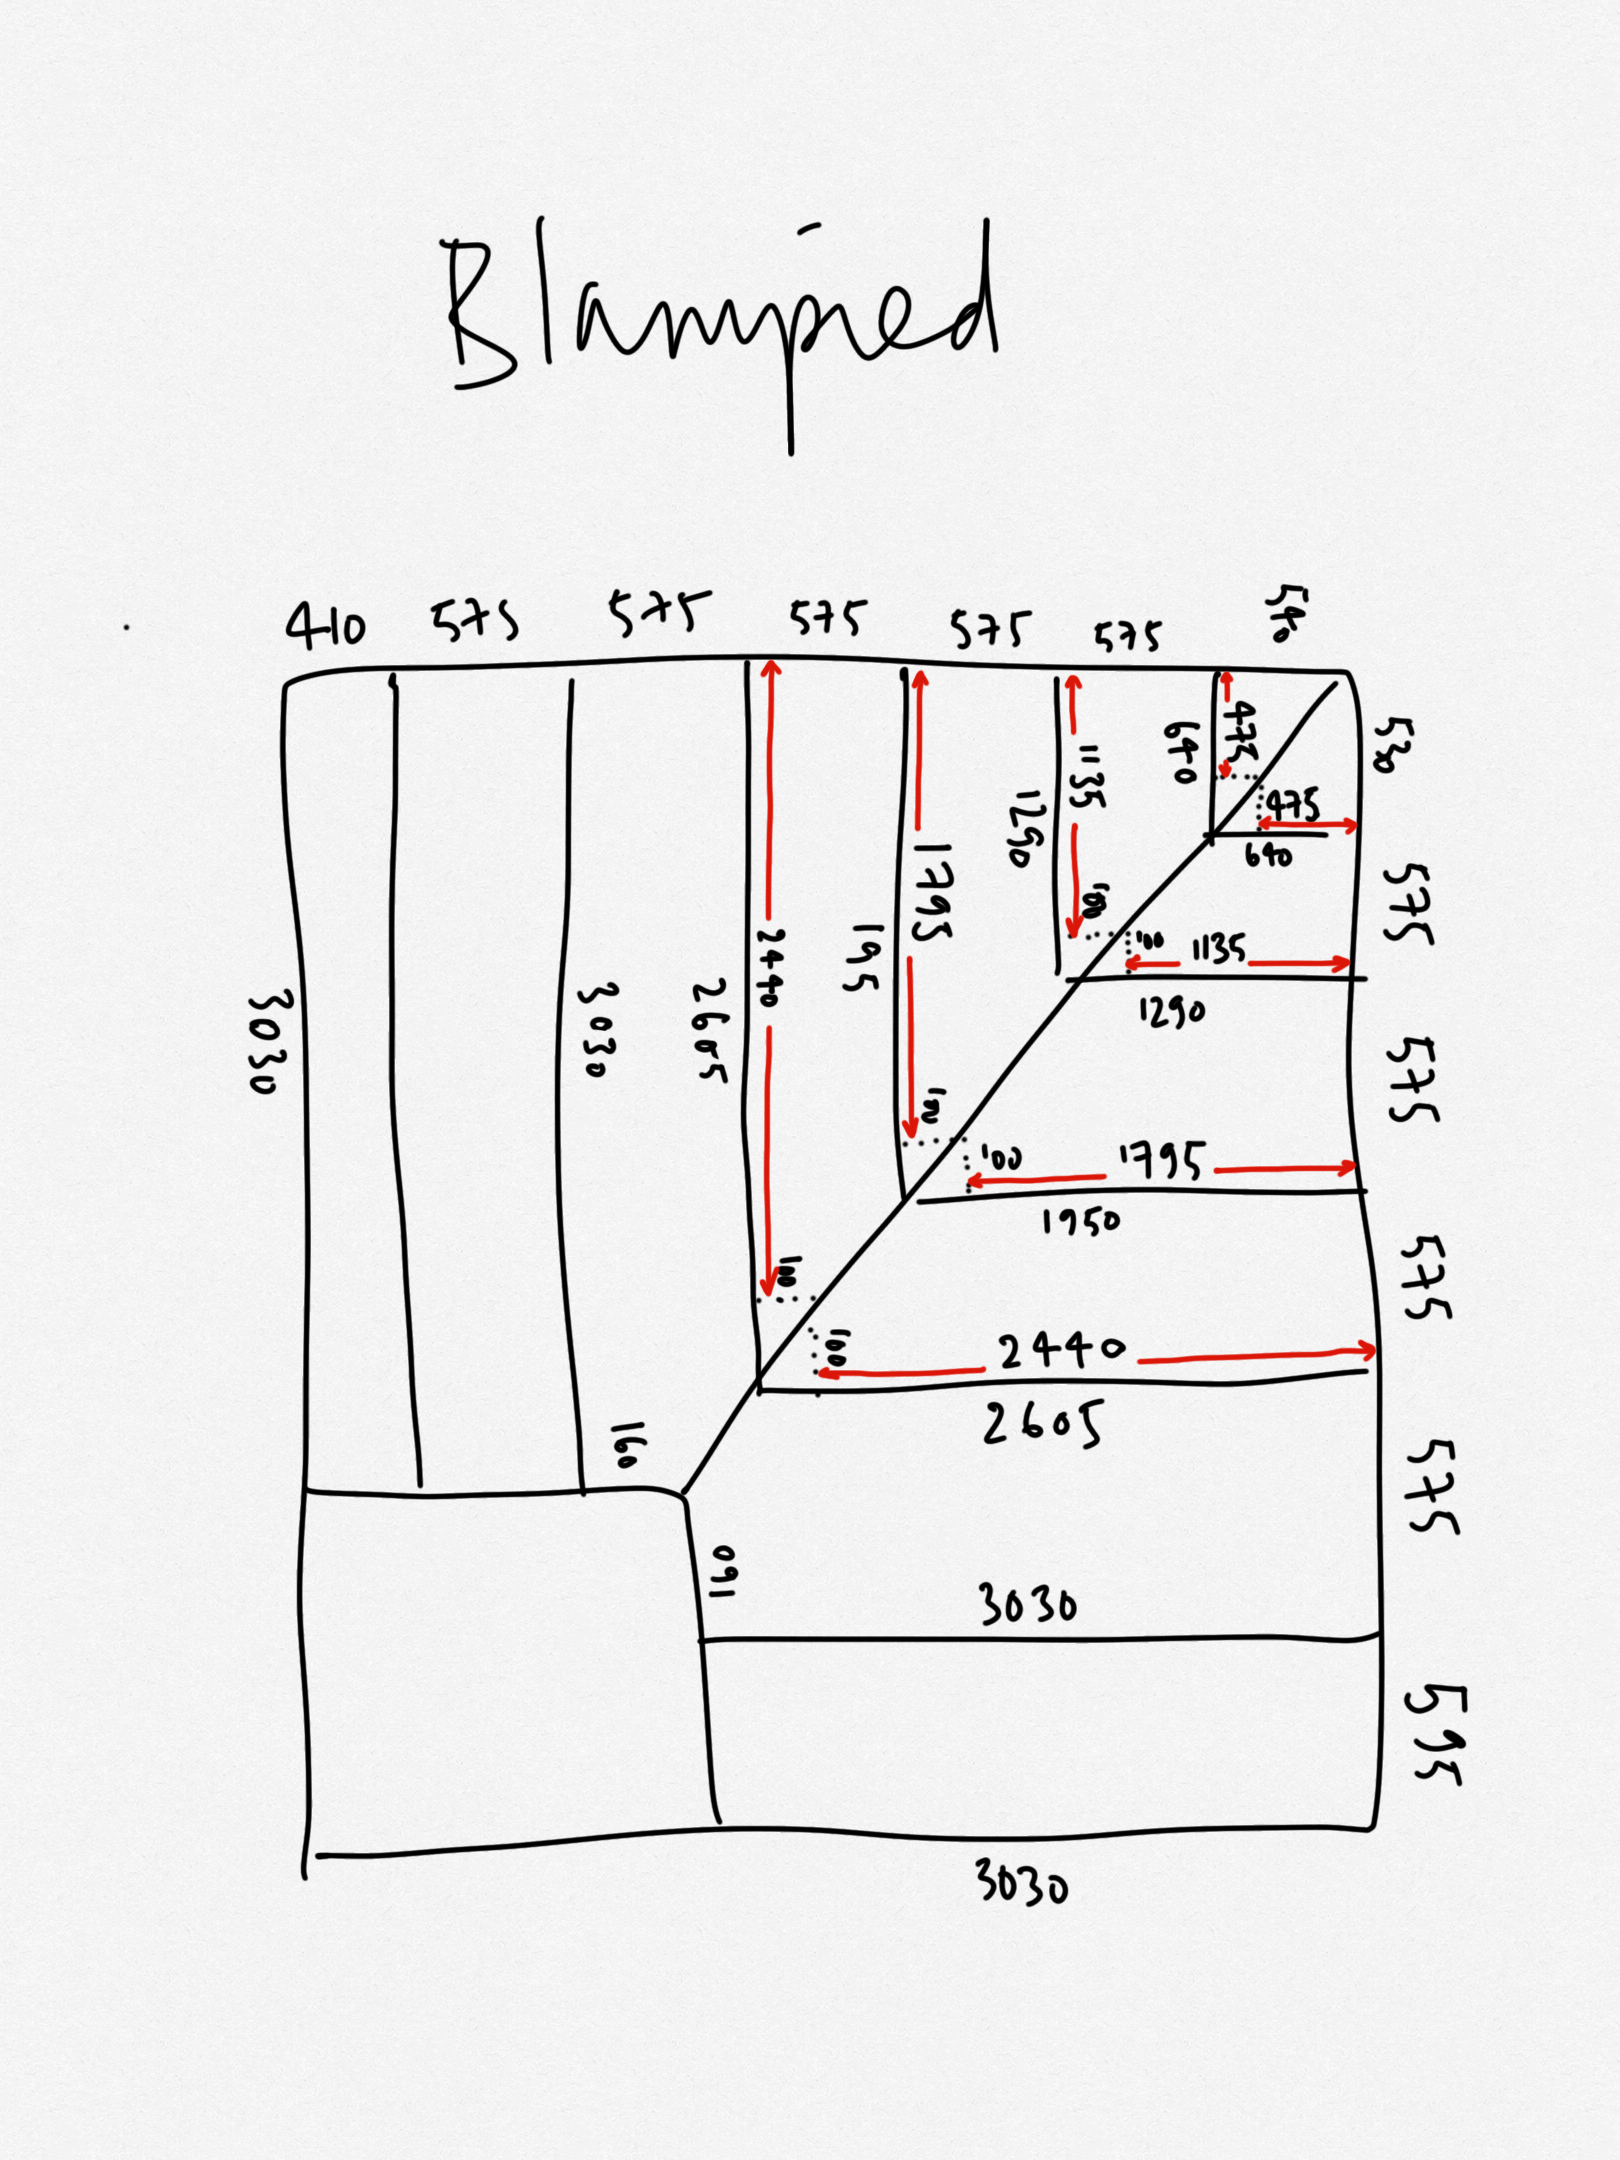 Blampied
410 575 575 575 575 575 540
530
640 473
475
640
575
1135
1290
100
100 1135
1290
575
2440
1795
195
3030
3030
2605
100
100 1795
1950
575
100
100
2440
2605
575
160
160
3030
595
3030